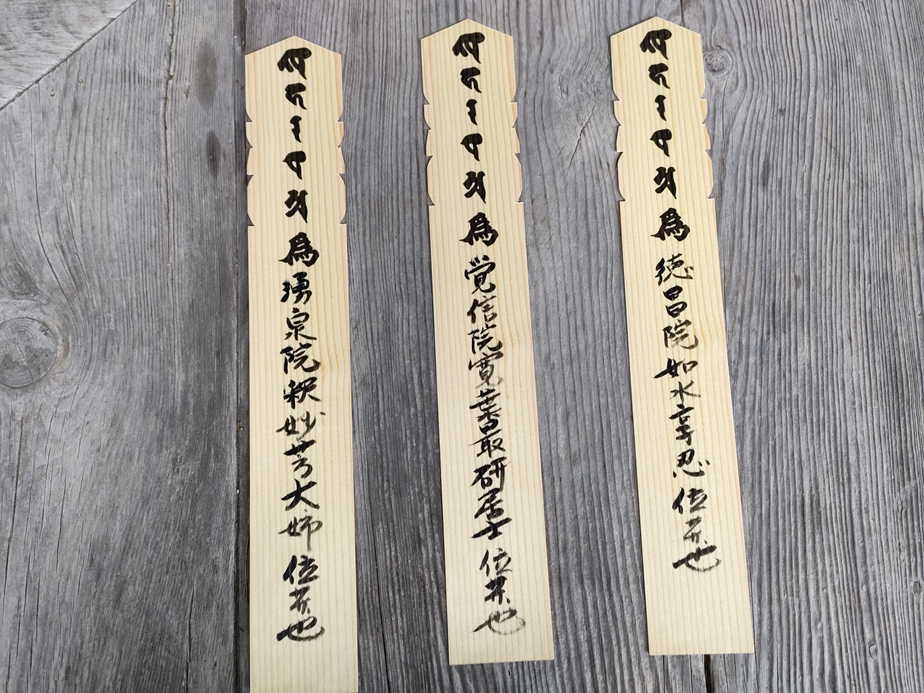 𑖏𑖮𑖨𑖪𑖀 爲 徳昌院如水享忍 位菩提也
𑖏𑖮𑖨𑖪𑖀 爲 覚信院寛葉最研居士 位菩提也
𑖏𑖮𑖨𑖪𑖀 爲 湧泉院釈妙芳大姉 位菩提也